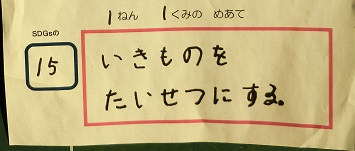 1ねん 1くみの めあて
SDGsの
15
いきものを
たいせつにする。